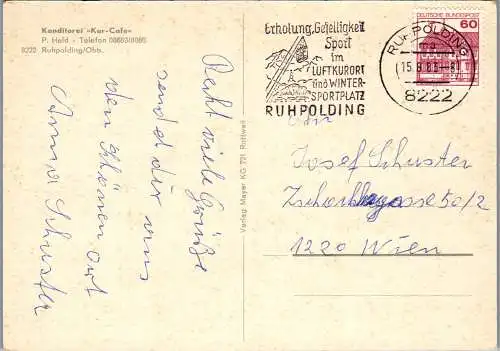 Konditorei »Kur-Cafe«
P. Held - Telefon 08663/9085
8222 Ruhpolding/Obb.
Recht viele Grüße
sendet dir uns
den schönen Ort
Anna Schuster
Verlag Mayer KG 721 Rottweil
Erholung, Geselligkeit
Sport
im
LUFTKURORT
und WINTER-
SPORTPLATZ
RUHPOLDING
RUHPOLDING
8222
DEUTSCHE BUNDESPOST
60
Josef Schuster
50/2
1220 Wien